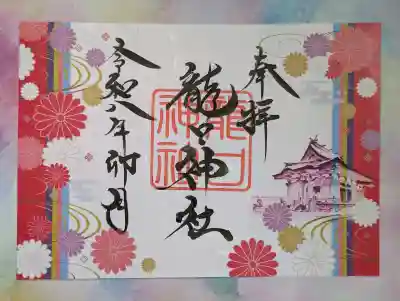 奉拝
龍口神社
令和八年卯月
龍口
神社